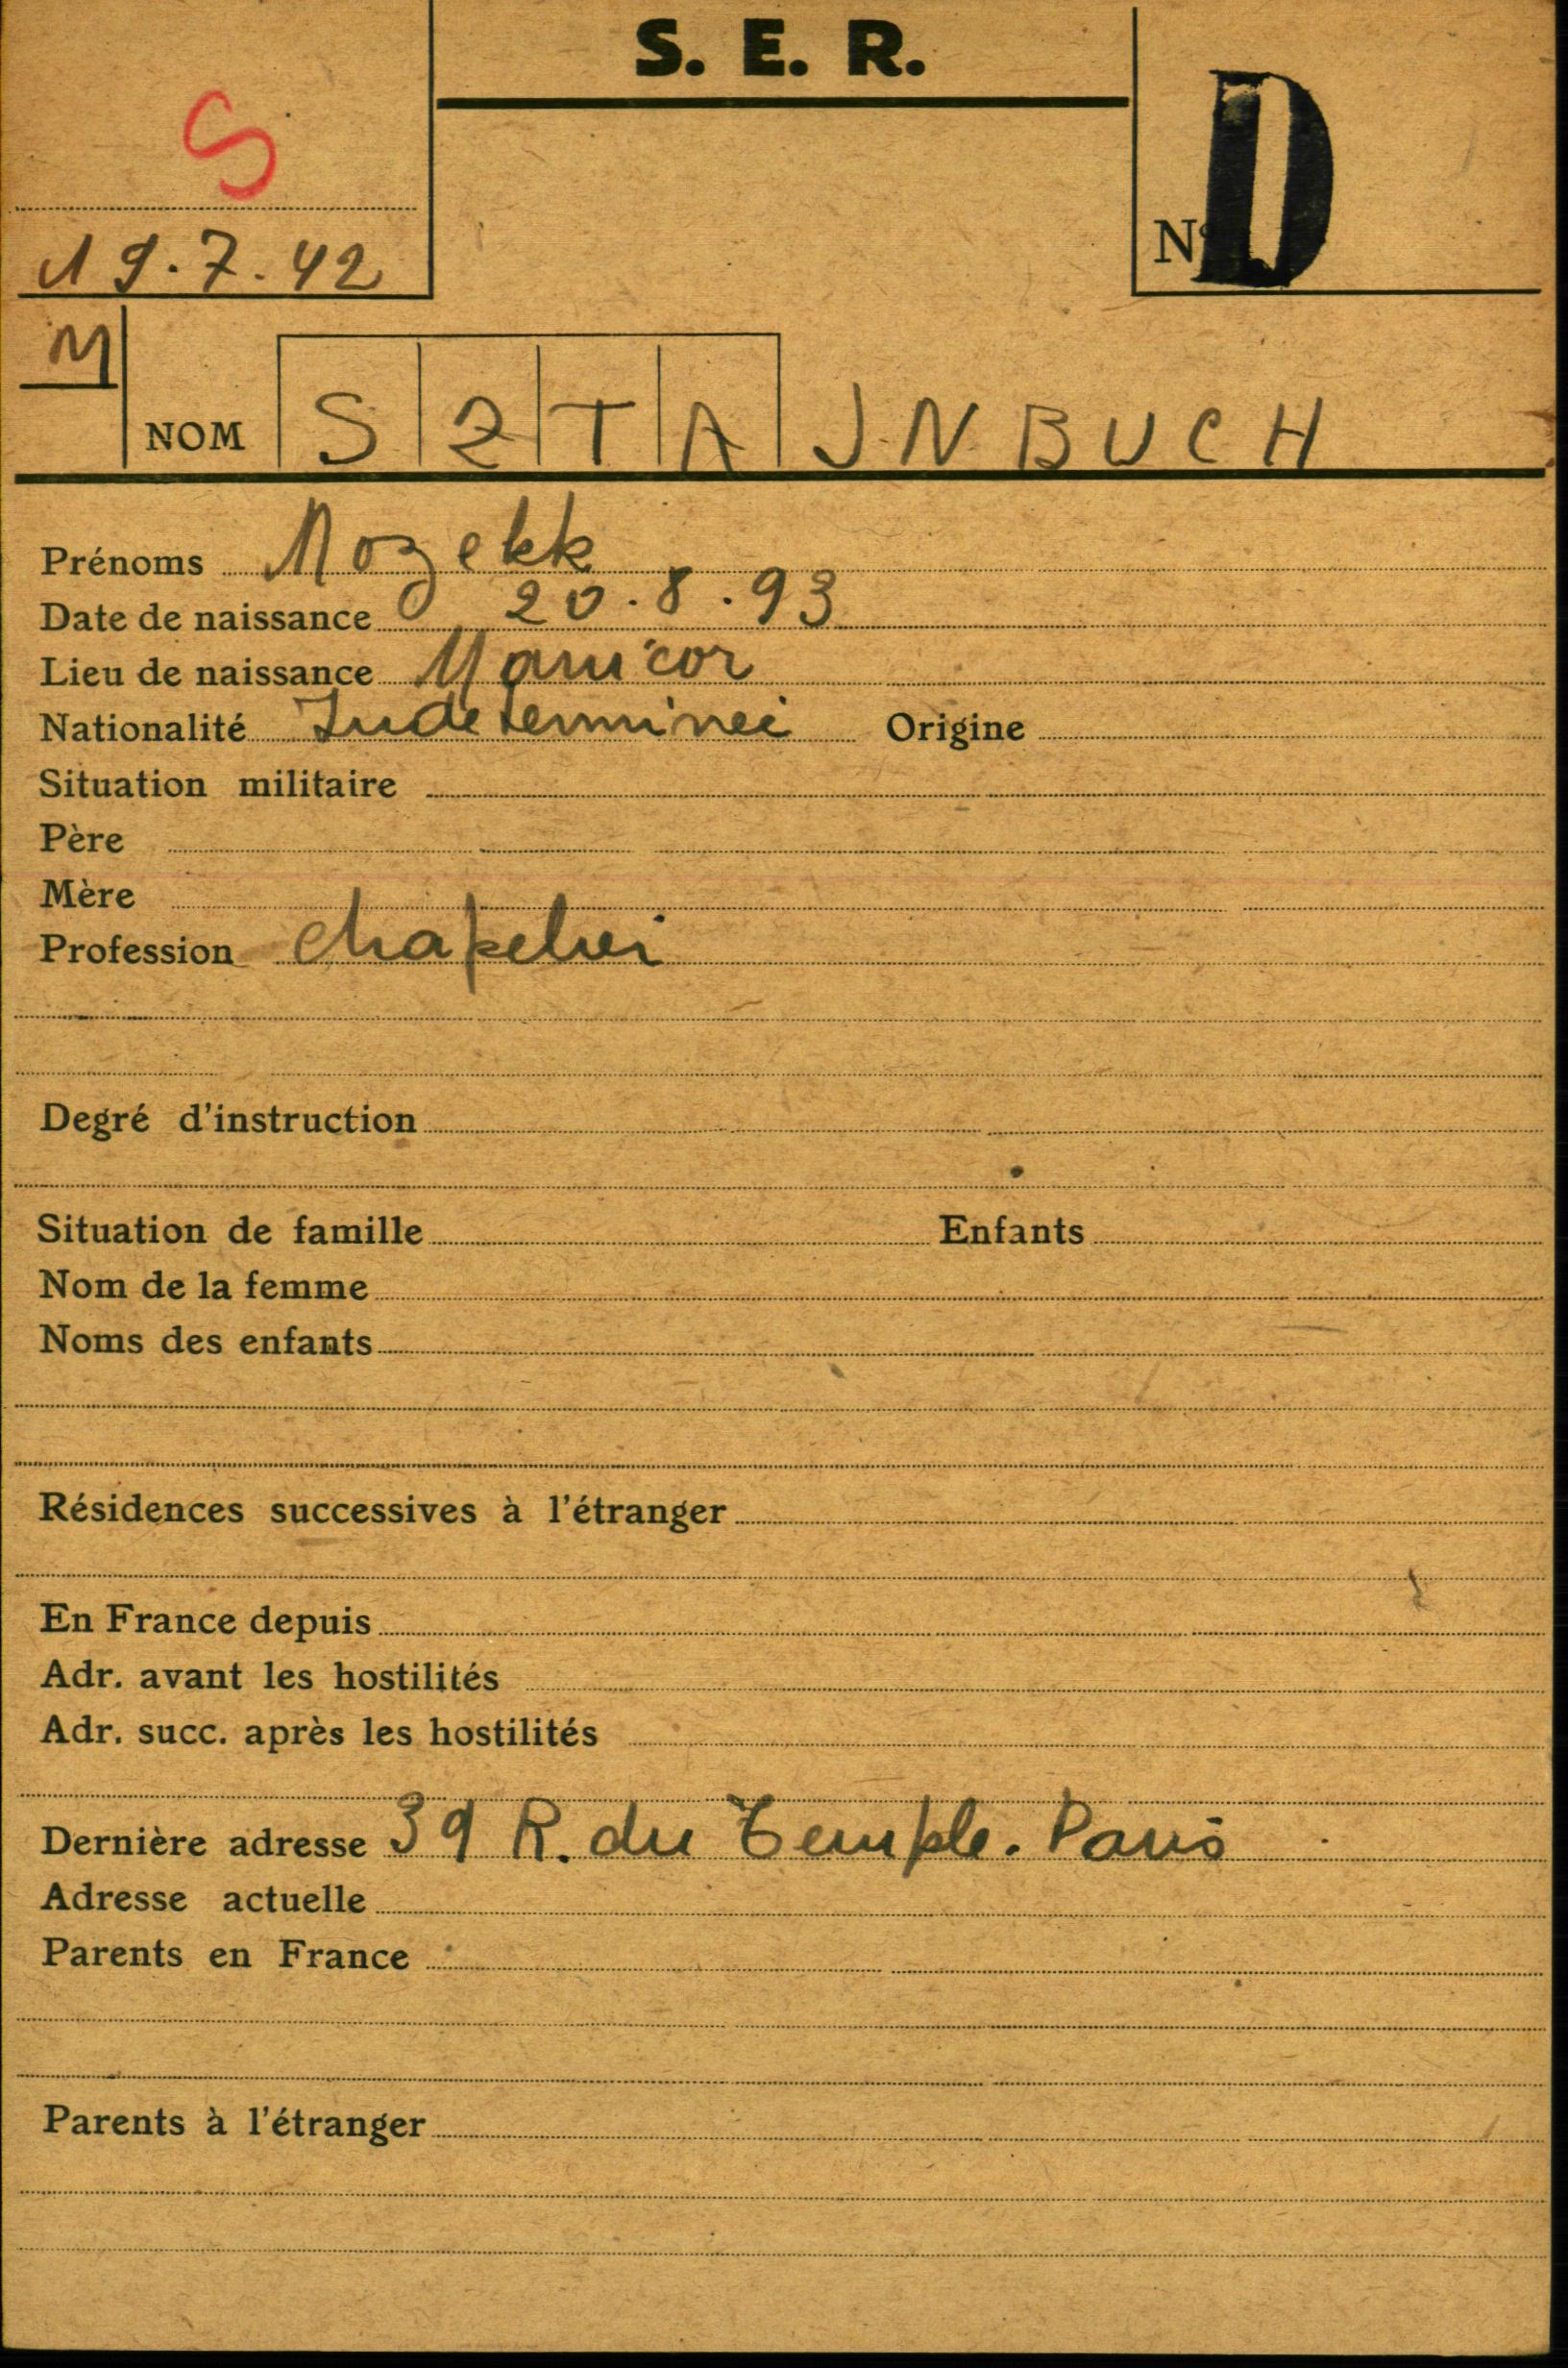 S. E. R.
S
D
N°
19.7.42
M
NOM SZTAJNBUCH
Prénoms Mozekk
Date de naissance 20.8.93
Lieu de naissance
Nationalité Indeterminei Origine
Situation militaire
Père
Mère
Profession Chapelier
Degré d'instruction
Situation de famille Enfants
Nom de la femme
Noms des enfants
Résidences successives à l'étranger
En France depuis
Adr. avant les hostilités
Adr. succ. après les hostilités
Dernière adresse 39 R. du Temple. Paris
Adresse actuelle
Parents en France
Parents à l'étranger